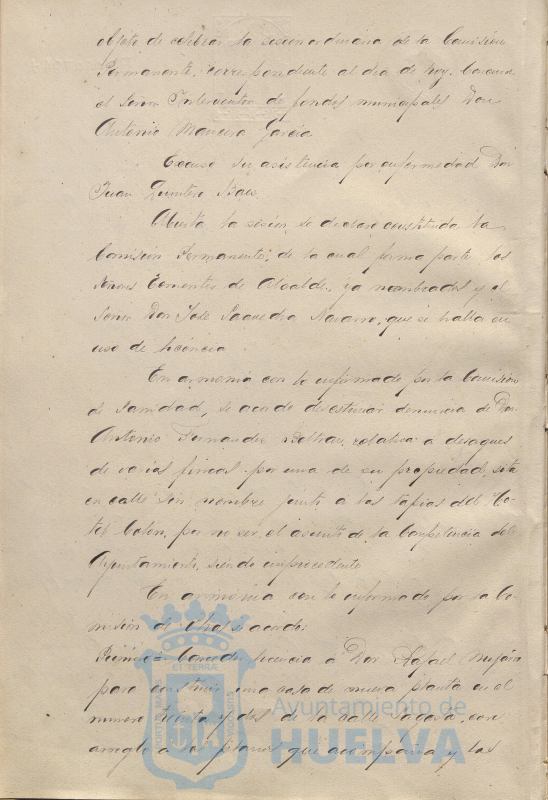 objeto de celebrar la sesion ordinaria de la Comisión
Permanente, correspondiente al dia de hoy. Concurre
el Señor Interventor de fondos municipales Don
Antonio Mancera Garcia
Excusó su asistencia por enfermedad Don
Juan Quintero Baez.
Abierta la sesion, se declaró constituida la
Comisión Permanente, de la cual forma parte los
Señores Tenientes de Alcalde, ya nombrados y el
Señor Don José Saavedra Navarro, que se halla en
uso de licencia.
En armonia con lo informado por la Comisión
de Sanidad, se acorde desestimar denuncia de Don
Antonio Fernandez Beltran, relativa a desagues
de varias fincas por una de su propiedad, sita
en calle sin nombre junto a las tapias del Ho-
tel Colon, por no ser el asunto de la Competencia del
Ayuntamiento, siendo improcedente
En armonia con lo informado por la Co-
misión de Obras se acordo:
Primero = Conceder licencia a Don Rafael
para construir una casa de nueva planta en el
numero treinta y dos de la calle Sagasta, con
arreglo a los planos que acompaña y las
PORTUS MARIS
ET TERRÆ
Ayuntamiento de
HUELVA